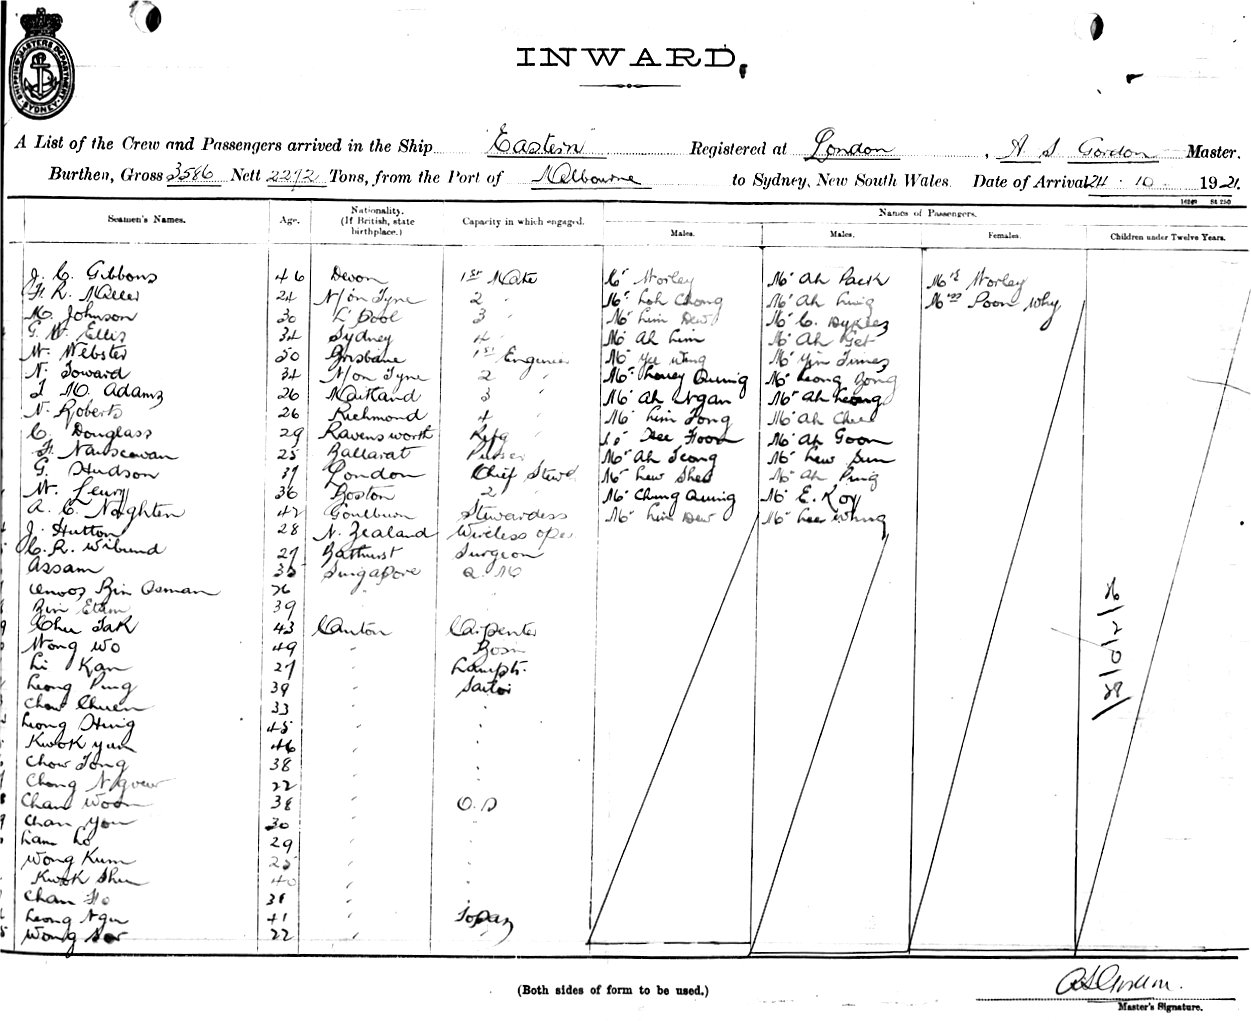 SHIPPING MASTERS DEPARTMENT SYDNEY
INWARD,
A List of the Crew and Passengers arrived in the Ship Eastern Registered at London, A S Gordon Master.
Burthen, Gross 3586 Nett 2272 Tons, from the Port of Melbourne to Sydney, New South Wales. Date of Arrival 24 . 10 . 1921.
Names of Passengers.
Seamen's Names. Age. Nationality. (If British, state birthplace.) Capacity in which engaged. Males. Males. Females. Children under Twelve Years.
J. C. Gibbons 46 Devon 1st Mate Worley Mr Ah Pack Mrs Worley
24 N/on Tyne 2 " Mr Loh Chong Mr Ah Ling Mrs Poon Why
M. Johnson 30 L'pool 3 " Mr Lim Dew Mr C. Dykes
G. W. Ellis 34 Sydney 4 " Mr Ah Lim Mr Ah Get
W. Webster 50 Brisbane 1st Engineer Mr Yee Wing Mr Yin Times
N. Toward 34 N/on Tyne 2 " Mr Louey Quing Mr Leong Gong
M. Adams 26 Maitland 3 " Mr Ah Ngan Mr Ah Leong
N. Roberts 26 Richmond 4 " Mr Lim Tong Mr Ah Chee
C. Douglass 29 Ravensworth Refg " Foon Mr Ah Goon
F. 25 Ballarat Purser Mr Ah Leong Mr Lew Sun
G. Hudson 37 London Chief Stewd Mr Lew Shea Mr Ah Ping
W. Leury 36 Boston 2 " Mr Chung Quing Mr E. Koy
A. C. Naghten 42 Goulburn Stewardess Mr Lim Dew Mr Lee Whing
J. Hutton 28 N. Zealand Wireless oper
C. R. Wiburd 27 Bathurst Surgeon
Assam 35 Singapore Q. M
Bin Osman 26 "
Bin Etam 39 "
Chu Tak 43 Canton Carpenter
Wong Wo 49 " Bosn
Li Kan 27 " Lampt.
Leong Ping 39 " Sailor
Chow Chuen 33 " "
Leong Hing 45 " "
Kwok Yun 46 " "
Chow Tong 38 " "
Chong 22 " "
Chan Woon 38 " O.S
Chan You 30 " "
Lam Lo 29 " "
Wong Kum 25 " "
Kwok Shu 40 " "
Chan Ho 31 " "
Leong Ngu 41 " Topaz
Wong 22 " "
(Both sides of form to be used.)
Master's Signature.